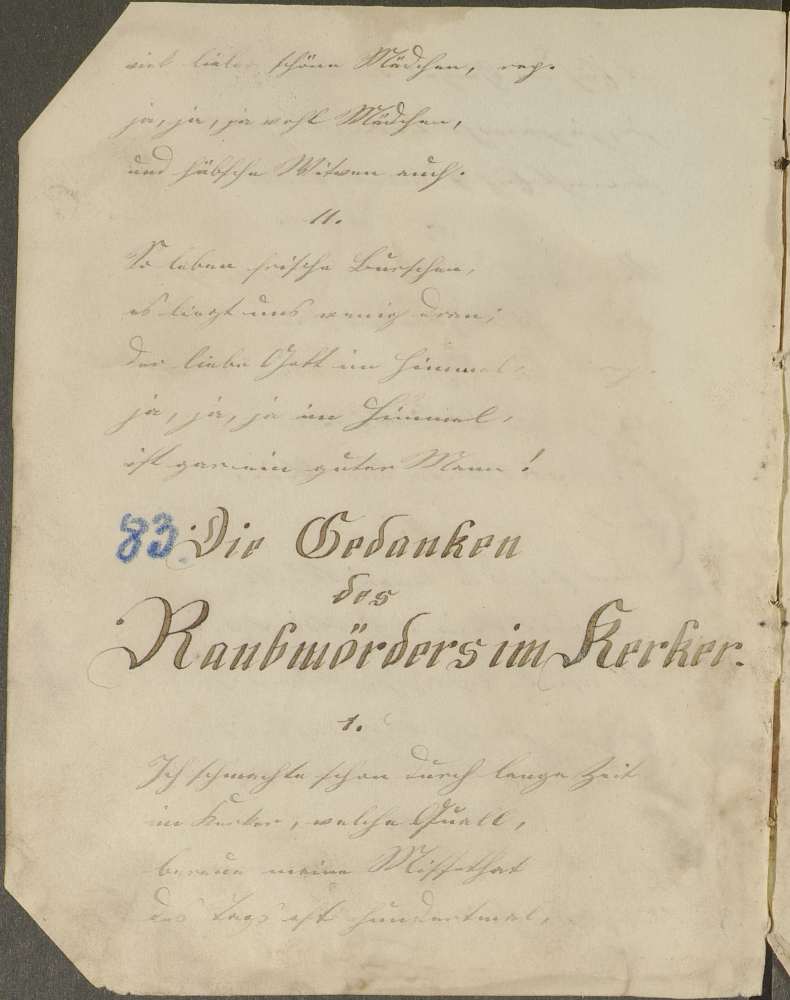 viel liebe schöne Mädchen, rep.
ja, ja, ja wohl Mädchen,
und hübsche Witwen auch.
11.
So leben frische Burschen,
es liegt uns wenig dran;
der liebe Gott im Himmel, rep.
ja, ja, ja im Himmel,
ist gar ein guter Mann!
83. Die Gedanken
des
Raubmörders im Kerker.
1.
Ich schmachte schon durch lange Zeit
im Kerker, welche Quall,
bereue meine Missethat
des Tags oft hundertmal,